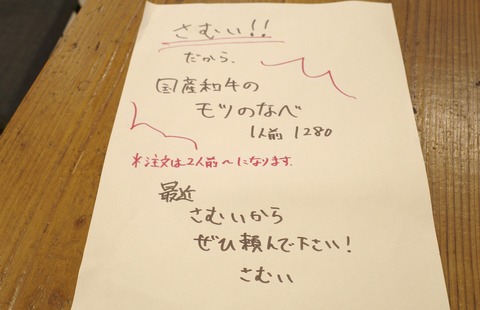 さむい!!
だから、
国産和牛の
モツのなべ
1人前 1280
*注文は2人前〜になります。
最近
さむいから
ぜひ頼んで下さい!
さむい